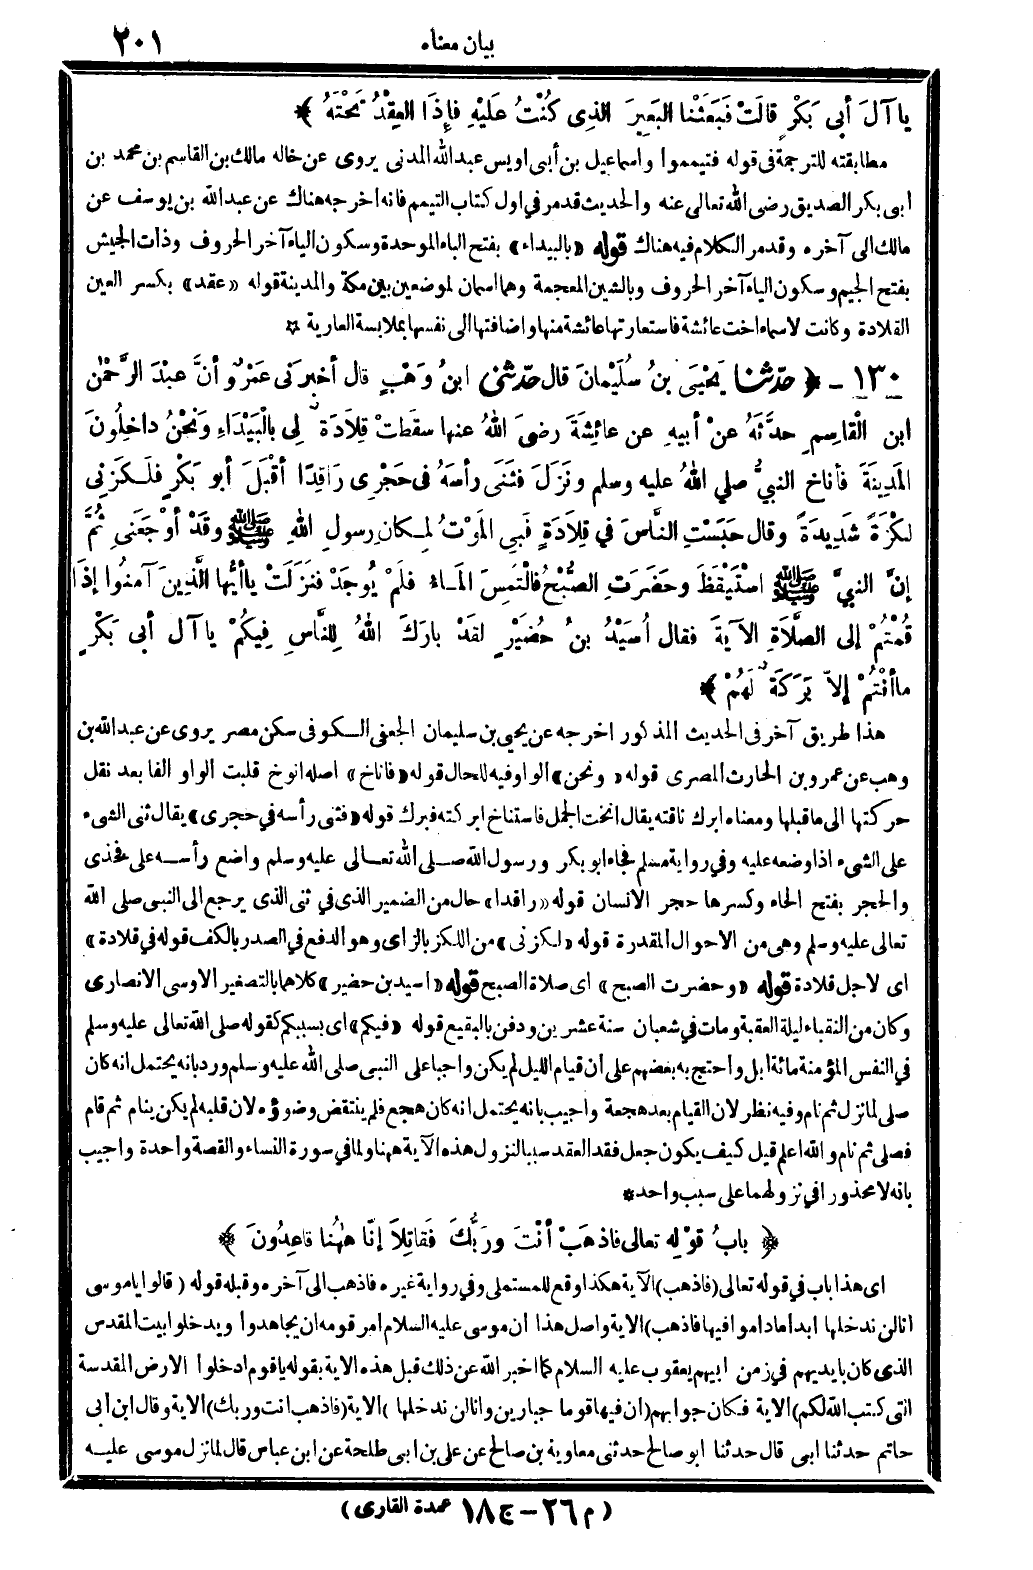 بيان معناه ٢٠١
يا آلَ أبِي بَكْرٍ قالَتْ فَبَعَثْنا البَعِيرَ الذِي كُنْتُ عَلَيْهِ فإِذَا العِقْدُ تَحْتَهُ ﴾
مطابقته للترجمة في قوله فتيمموا واسماعيل بن أبى اويس عبد الله المدنى يروى عن خاله مالك بن القاسم بن محمد بن
ابى بكر الصديق رضى الله تعالى عنه والحديث قد مر في اول كتاب التيمم فانه اخرجه هناك عن عبد الله بن يوسف عن
مالك الى آخره وقد مر الكلام فيه هناك قوله «بالبيداء» بفتح الباء الموحدة وسكون الياء آخر الحروف وذات الجيش
بفتح الجيم وسكون الياء آخر الحروف وبالشين المعجمة وهما اسمان لموضعين بين مكة والمدينة قوله «عقد» بكسر العين
القلادة وكانت لاسماء اخت عائشة فاستعارتها عائشة منها واضافتها الى نفسها بملابسة العارية ☆
١٣٠ - ﴿ حدّثنا يَحْيَى بنُ سُلَيْمانَ قال حدّثني ابنُ وَهْبٍ قال أخبرَنى عَمْرٌو أنَّ عبْدَ الرَّحْمٰنِ
ابن القاسِمِ حدَّثَهُ عنْ أبيهِ عن عائِشَةَ رضىَ اللهُ عنها سقَطَتْ قِلادَةٌ لِي بالْبَيْدَاءِ وَنَحْنُ داخِلُونَ
المَدِينَةَ فأناخَ النبيُّ صلي اللهُ عليه وسلم ونَزَلَ فَثَنَى رأسَهُ في حَجْرِى رَاقِدًا أقْبَلَ أبو بَكْرٍ فَلَكَزَنِي
لَكْزَةً شَدِيدَةً وقال حَبَسْتِ النَّاسَ في قِلادَةٍ فَبِي المَوْتُ لِمكانِ رسولِ اللهِ ﷺ وقَدْ أوْجَعَنِي ثُمَّ
إنَّ النبيَّ ﷺ اسْتَيْقَظَ وحَضَرَتِ الصُّبْحُ فالْتُمِسَ المَاءُ فلَمْ يُوجَدْ فنَزَلَتْ ياأيُّها الَّذِينَ آمَنُوا إذَا
قُمْتُمْ إلى الصَّلاةِ الآيَةَ فقال أُسَيْدُ بنُ حُضَيْرٍ لقَدْ بارَكَ اللهُ لِلنَّاسِ فِيكُمْ يا آلَ أبى بَكْرٍ
ماأنْتُمْ إلاّ بَرَكَةٌ لَهُمْ ﴾
هذا طريق آخر في الحديث المذكور اخرجه عن يحيى بن سليمان الجعفى الكوفى سكن مصر يروى عن عبد الله بن
وهب عن عمرو بن الحارث المصرى قوله «ونحن» الواو فيه للحال قوله «فاناخ» اصله انوخ قلبت الواو الفا بعد نقل
حركتها الى ما قبلها ومعناه ابرك ناقته يقال انخت الجمل فاستناخ ابركته فبرك قوله «فثنى رأسه في حجرى» يقال ثنى الشىء
على الشىء اذا وضعه عليه وفي رواية مسلم فجاء ابو بكر ورسول الله صلى الله تعالى عليه وسلم واضع رأسه على فخذى
والحجر بفتح الحاء وكسرها حجر الانسان قوله «راقدا» حال من الضمير الذى في ثنى الذى يرجع الى النبى صلى الله
تعالى عليه وسلم وهى من الاحوال المقدرة قوله «لكزنى» من اللكز بالزاى وهو الدفع في الصدر بالكف قوله في قلادة»
اى لاجل قلادة قوله «وحضرت الصبح» اى صلاة الصبح قوله «اسيد بن حضير» كلاهما بالتصغير الاوسى الانصارى
وكان من النقباء ليلة العقبة ومات في شعبان سنة عشرين ودفن بالبقيع قوله «فيكم» اى بسببكم كقوله صلى الله تعالى عليه وسلم
في النفس المؤمنة مائة ابل واحتج به بعضهم على أن قيام الليل لم يكن واجبا على النبى صلى الله عليه وسلم ورد بانه يحتمل انه كان
صلى لما نزل ثم نام وفيه نظر لان القيام بعد هجعة واجيب بانه يحتمل انه كان هجع فلم ينتقض وضوؤه لان قلبه لم يكن ينام ثم قام
فصلى ثم نام والله اعلم قيل كيف يكون جعل فقد العقد سببا لنزول هذه الآية ههنا ولما في سورة النساء والقصة واحدة واجيب
بانه لا محذور افي نزولهما على سبب واحد*
﴿ بابُ قوْلِهِ تعالى فاذهَبْ أنْتَ ورَبُّكَ فَقاتِلاَ إنّا هٰهُنا قاعِدُونَ ﴾
اى هذا باب في قوله تعالى (فاذهب) الآية هكذا وقع للمستملى وفي رواية غيره فاذهب الى آخره وقبله قوله (قالوا ياموسى
انا لن ندخلها ابدا ماداموا فيها فاذهب) الآية واصل هذا أن موسى عليه السلام امر قومه ان يجاهدوا ويدخلوا بيت المقدس
الذى كان بايديهم في زمن ابيهم يعقوب عليه السلام كما اخبر الله عن ذلك قبل هذه الاية بقوله ياقوم ادخلوا الارض المقدسة
التى كتب الله لكم) الاية فكان جوابهم (ان فيها قوما جبارين وانا لن ندخلها )الاية (فاذهب انت وربك) الاية وقال ابن أبى
حاتم حدثنا ابى قال حدثنا ابو صالح حدثنى معاوية بن صالح عن على بن ابى طلحة عن ابن عباس قال لما نزل موسى عليه
(م ٢٦ - ج ١٨ عمدة القارى)